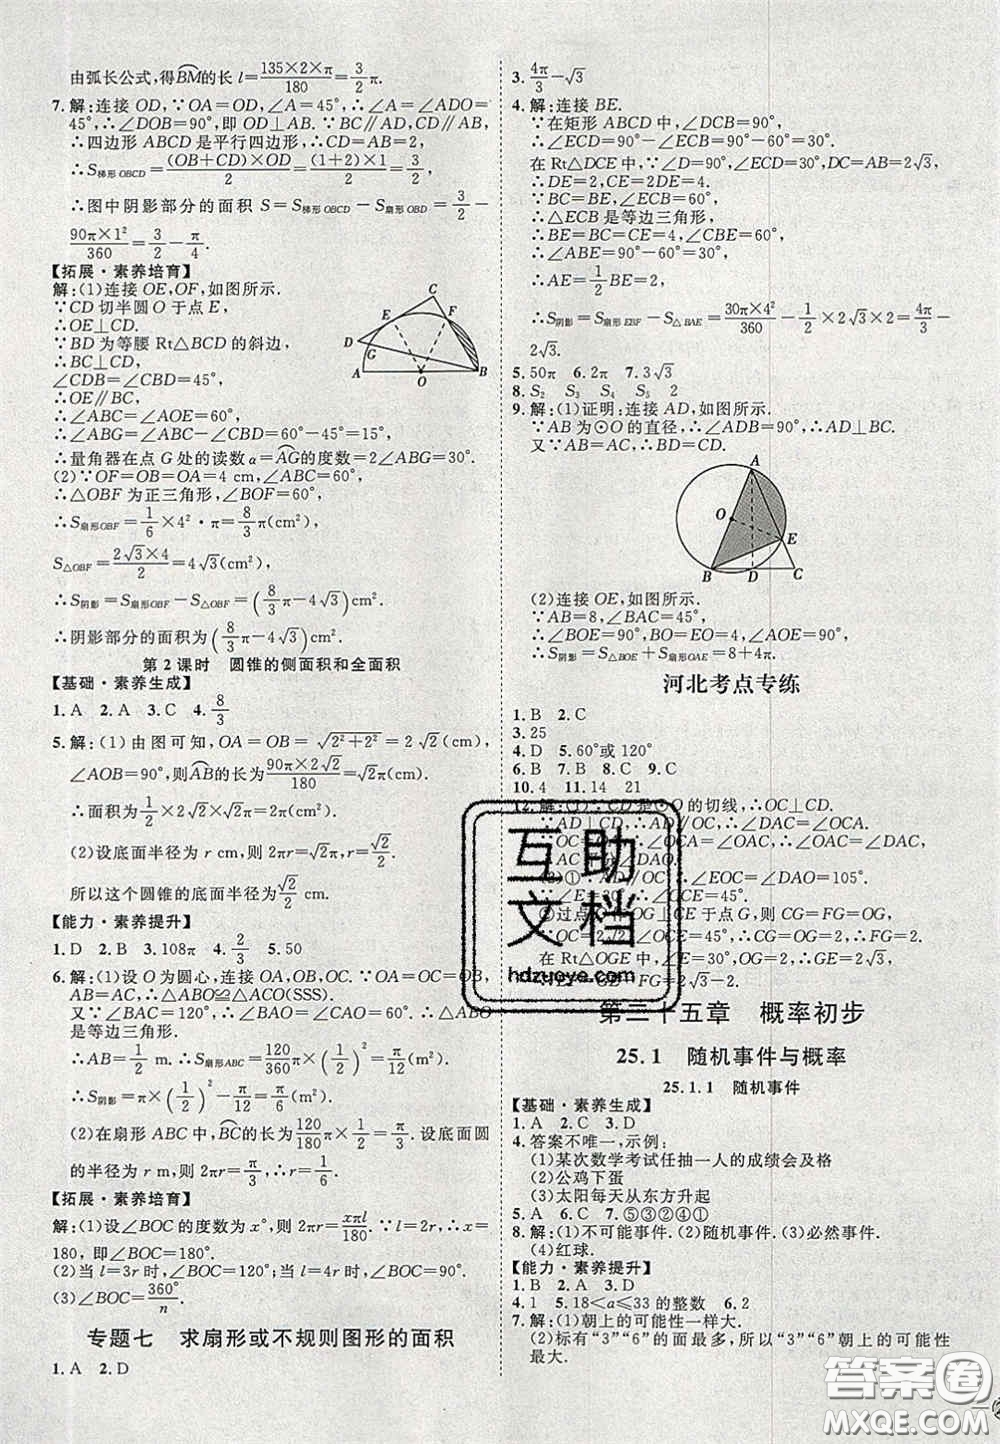 由弧长公式,得BM的长 l=135×2×π/180=3/2π.
7.解:连接 OD,∵OA=OD,∠A=45°,∴∠ADO=
45°,∴∠DOB=90°,即 OD⊥AB.∵BC∥AD,CD∥AB,
∴四边形 ABCD 是平行四边形,∴CD=AB=2,
∴S梯形OBCD=(OB+CD)×OD/2=(1+2)×1/2=3/2,
∴图中阴影部分的面积 S=S梯形OBCD-S扇形OBD=3/2-
90π×1²/360=3/2-π/4.
【拓展·素养培育】
解:(1)连接 OE,OF,如图所示.
∵CD 切半圆 O 于点 E,
∴OE⊥CD.
∵BD 为等腰 Rt△BCD 的斜边,
∴BC⊥CD,
∠CDB=∠CBD=45°,
∴OE∥BC,
∴∠ABC=∠AOE=60°,
∴∠ABG=∠ABC-∠CBD=60°-45°=15°,
∴量角器在点 G 处的读数 α=AG的度数=2∠ABG=30°.
(2)∵OF=OB=OA=4 cm,∠ABC=60°,
∴△OBF 为正三角形,∠BOF=60°,
∴S扇形OBF=1/6×4²·π=8/3π(cm²),
S△OBF=2√3×4/2=4√3(cm²),
∴S阴影=S扇形OBF-S△OBF=(8/3π-4√3)(cm²),
∴阴影部分的面积为(8/3π-4√3)cm².
A B C D E F G O
第2课时 圆锥的侧面积和全面积
【基础·素养生成】
1.A 2.A 3.C 4.8/3
5.解:(1)由图可知,OA=OB=√2²+2²=2√2(cm),
∠AOB=90°,则AB的长为90π×2√2/180=√2π(cm).
∴面积为1/2×2√2×√2π=2π(cm²).
(2)设底面半径为 r cm,则2πr=√2π,∴r=√2/2.
所以这个圆锥的底面半径为√2/2 cm.
【能力·素养提升】
1.D 2.B 3.108π 4.2/3 5.50
6.解:(1)设 O 为圆心,连接 OA,OB,OC.∵OA=OC=OB,
AB=AC,∴△ABO≌△ACO(SSS).
又∵∠BAC=120°,∴∠BAO=∠CAO=60°,∴△ABO
是等边三角形,
∴AB=1/2 m.∴S扇形ABC=120/360×π×(1/2)²=π/12(m²).
∴S阴影=π×(1/2)²-π/12=π/6(m²).
(2)在扇形 ABC 中,BC的长为120/180×π×1/2=π/3.设底面圆
的半径为 r m,则2πr=π/3,∴r=1/6.
【拓展·素养培育】
解:(1)设∠BOC 的度数为 x°,则2πr=xπl/180.∵l=2r,∴x=
180,即∠BOC=180°.
(2)当 l=3r 时,∠BOC=120°;当 l=4r 时,∠BOC=90°.
(3)∠BOC=360°/n.
专题七 求扇形或不规则图形的面积
1.A 2.D
3.4π/3-√3
4.解:连接 BE.
∵在矩形 ABCD 中,∠DCB=90°,
∴∠ECD=90°-∠ECB=90°-60°=30°.
在 Rt△DCE 中,∵∠D=90°,∠ECD=30°,DC=AB=2√3,
∴DE=2,CE=4.
∵BC=BE,∠ECB=60°,
∴△ECB 是等边三角形,
∴BE=BC=CE=4,∠EBC=60°,
∴∠ABE=90°-60°=30°,
∴AE=1/2BE=2.
∴S阴影=S扇形EBF-S△BAE=30π×4²/360-1/2×2√3×2=4π/3-
2√3.
5.50π 6.2π 7.3√3
8.S₂ S₃ S₅ 2
9.解:(1)证明:连接 AD,如图所示.
∵AB 为⊙O 的直径,∴∠ADB=90°,∴AD⊥BC.
又∵AB=AC,∴BD=CD.
A O E B D C
(2)连接 OE,如图所示.
∵AB=8,∠BAC=45°,
∴∠BOE=90°,BO=EO=4,∠AOE=90°,
∴S阴影=S△BOE+S扇形OAE=8+4π.
河北考点专练
1.B 2.C
3.25
4.D 5.60°或 120°
6.B 7.B 8.C 9.C
10.4 11.14 21
12.解:(1)∵CD 是⊙O 的切线,∴OC⊥CD.
∵AD⊥CD,∴AD∥OC,∴∠DAC=∠OCA.
∵OC=OA,∴∠OCA=∠OAC,∴∠OAC=∠DAC,
∴AC平分∠DAO.
(2)①∵AD∥OC,∴∠EOC=∠DAO=105°.
∵∠E=30°,∴∠OCE=45°.
②过点 O 作 OG⊥CE 于点 G,则CG=FG=OG,
∵OC=2√2,∠OCE=45°,∴CG=OG=2,∴FG=2.
在 Rt△OGE 中,∵∠E=30°,∴GE=2√3,
∴EF=GE-FG=2√3-2.
第二十五章 概率初步
25.1 随机事件与概率
25.1.1 随机事件
【基础·素养生成】
1.A 2.C 3.D
4.答案不唯一,示例:
(1)某次数学考试任抽一人的成绩会及格
(2)公鸡下蛋
(3)太阳每天从东方升起
5.A 6.C 7.⑤③②④①
8.解:(1)不可能事件.(2)随机事件.(3)必然事件.
(4)红球.
【能力·素养提升】
1.B 2.A 3.D
4.1 5.18<a≤33 的整数 6.2
7.解:(1)朝上的可能性一样大.
(2)标有“3”“6”的面最多,所以“3”“6”朝上的可能性
最大.
互助文档
hdzuoye.com
答案圈
MXQE.COM